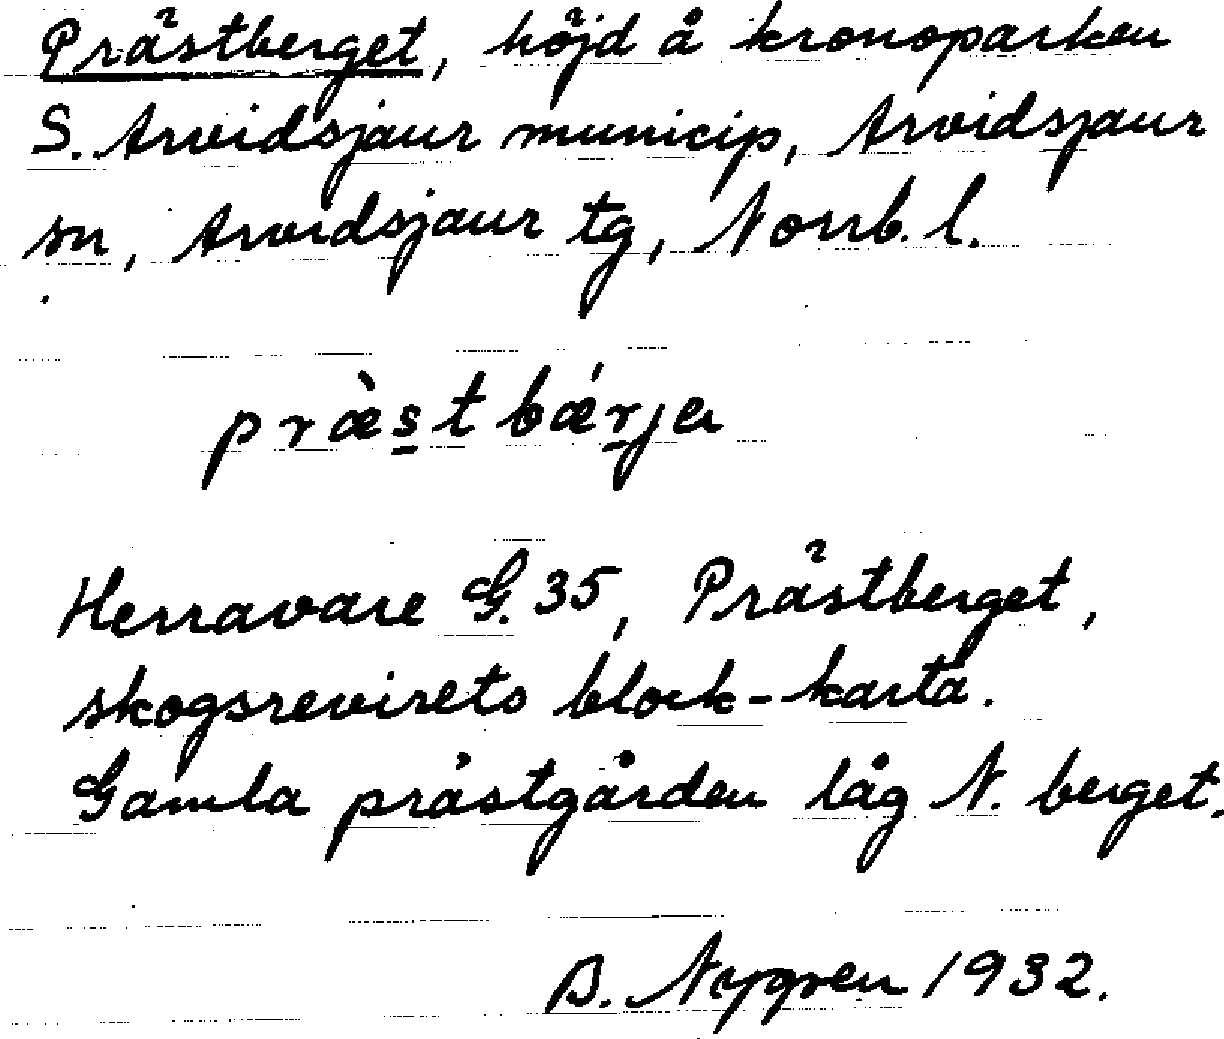 Prästberget, höjd å kronoparken
S. Arvidsjaur municip, Arvidsjaur
sn, Arvidsjaur tg, Norrb. l.
præ̀st bǽrja
Herravare G. 35, Prästberget,
skogsrevirets block-karta.
Gamla prästgården låg N. berget.
B. Nygren 1932.